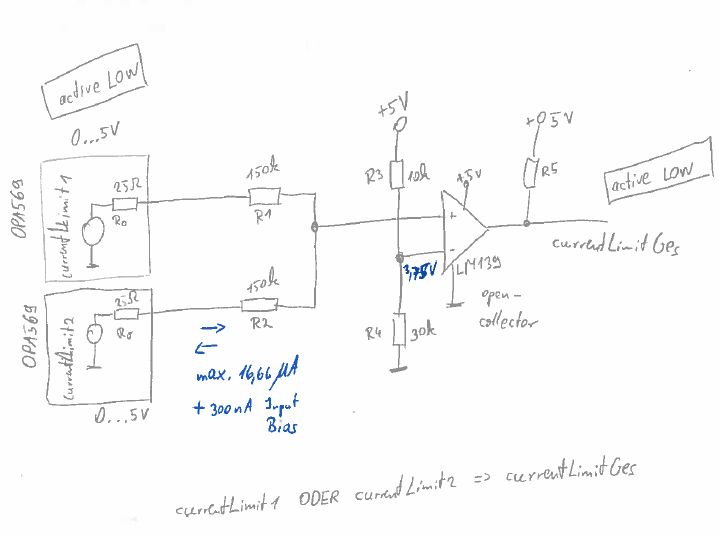 active LOW
0...5V
OPA569
currentLimit1
25Ω
Ro
150k
R1
OPA569
currentLimit2
25Ω
Ro
150k
R2
0...5V
max. 16,66 µA
+ 300nA Input
Bias
+5V
R3
10k
+5V
+
-
3,75V
LM139
open-
collector
R4
30k
+05V
R5
active LOW
currentLimitGes
currentLimit1 ODER currentLimit2 => currentLimitGes